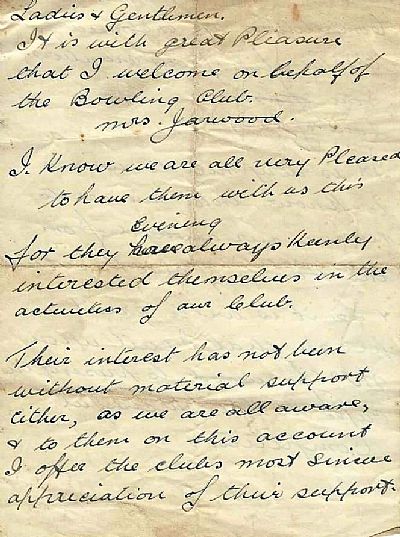 Ladies & Gentlemen.
It is with great Pleasure
that I welcome on behalf of
the Bowling Club.
Mrs. Jarwood.
I. Know we are all very Pleased
to have them with us this
evening
for they have always Keenly
interested themselves in the
activities of our Club.
Their interest has not been
without material support
either, as we are all aware,
& to them on this account
I offer the clubs most sincere
appreciation of their support.